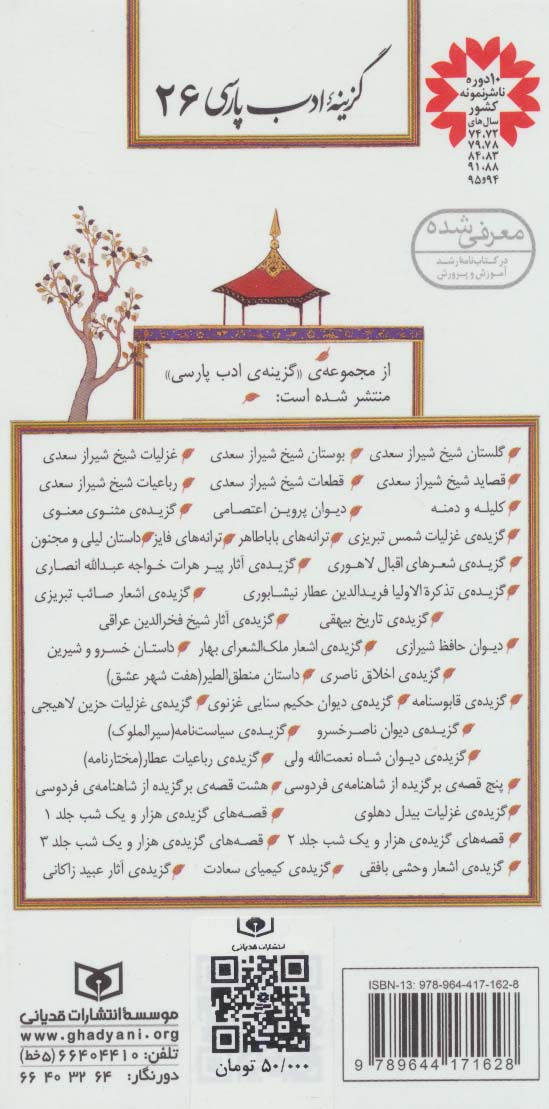 گزینهٔ ادب پارسی ۲۶
۱۰ دوره
ناشر نمونه
کشور
سال‌های
۷۴.۷۲
۷۹.۷۸
۸۴.۸۳
۹۱.۸۸
۹۴و۹۵
معرفی شده
در کتاب‌نامهٔ رشد
آموزش و پرورش
از مجموعه‌ی «گزینه‌ی ادب پارسی»
منتشر شده است:
گلستان شیخ شیراز سعدی بوستان شیخ شیراز سعدی غزلیات شیخ شیراز سعدی
قصاید شیخ شیراز سعدی قطعات شیخ شیراز سعدی رباعیات شیخ شیراز سعدی
کلیله و دمنه دیوان پروین اعتصامی گزیده‌ی مثنوی معنوی
گزیده‌ی غزلیات شمس تبریزی ترانه‌های باباطاهر ترانه‌های فایز داستان لیلی و مجنون
گزیده‌ی شعرهای اقبال لاهوری گزیده‌ی آثار پیر هرات خواجه عبدالله انصاری
گزیده‌ی تذکرة الاولیا فریدالدین عطار نیشابوری گزیده‌ی اشعار صائب تبریزی
گزیده‌ی تاریخ بیهقی گزیده‌ی آثار شیخ فخرالدین عراقی
دیوان حافظ شیرازی گزیده‌ی اشعار ملک‌الشعرای بهار داستان خسرو و شیرین
گزیده‌ی اخلاق ناصری داستان منطق‌الطیر(هفت شهر عشق)
گزیده‌ی قابوسنامه گزیده‌ی دیوان حکیم سنایی غزنوی گزیده‌ی غزلیات حزین لاهیجی
گزیده‌ی دیوان ناصرخسرو گزیده‌ی سیاست‌نامه(سیرالملوک)
گزیده‌ی دیوان شاه نعمت‌الله ولی گزیده‌ی رباعیات عطار(مختارنامه)
پنج قصه‌ی برگزیده از شاهنامه‌ی فردوسی هشت قصه‌ی برگزیده از شاهنامه‌ی فردوسی
گزیده‌ی غزلیات بیدل دهلوی قصه‌های گزیده‌ی هزار و یک شب جلد ۱
قصه‌های گزیده‌ی هزار و یک شب جلد ۲ قصه‌های گزیده‌ی هزار و یک شب جلد ۳
گزیده‌ی اشعار وحشی بافقی گزیده‌ی کیمیای سعادت گزیده‌ی آثار عبید زاکانی
انتشارات قدیانی
۵۰/۰۰۰ تومان
ISBN-13: 978-964-417-162-8
9 789644 171628
موسسهٔ انتشارات قدیانی
www.ghadyani.org
تلفن: ۶۶۴۰۴۴۱۰ (۵ خط)
دورنگار: ۶۶ ۴۰ ۳۲ ۶۴